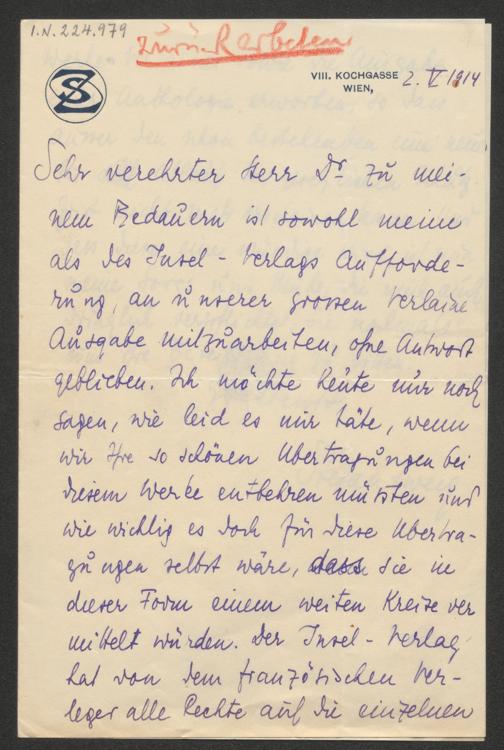 I.N. 224.979
zurückerbeten
SZ
VIII. KOCHGASSE
WIEN, 2. V 1914
Sehr verehrter Herr Dr zu mei-
nem Bedauern ist sowohl meine
als des Insel-Verlags Aufforde-
rung, an unserer grossen Verlaine
Ausgabe mitzuarbeiten, ohne Antwort
geblieben. Ich möchte heute nur noch
sagen, wie leid es mir täte, wenn
wir Ihre so schönen Übertragungen bei
diesem Werke entbehren müssten und
wie wichtig es doch für diese Übertra-
gungen selbst wäre, dass sie in
dieser Form einem weiten Kreise ver
mittelt würden. Der Insel-Verlag
hat von dem französischen Ver-
leger alle Rechte auf die einzelnen